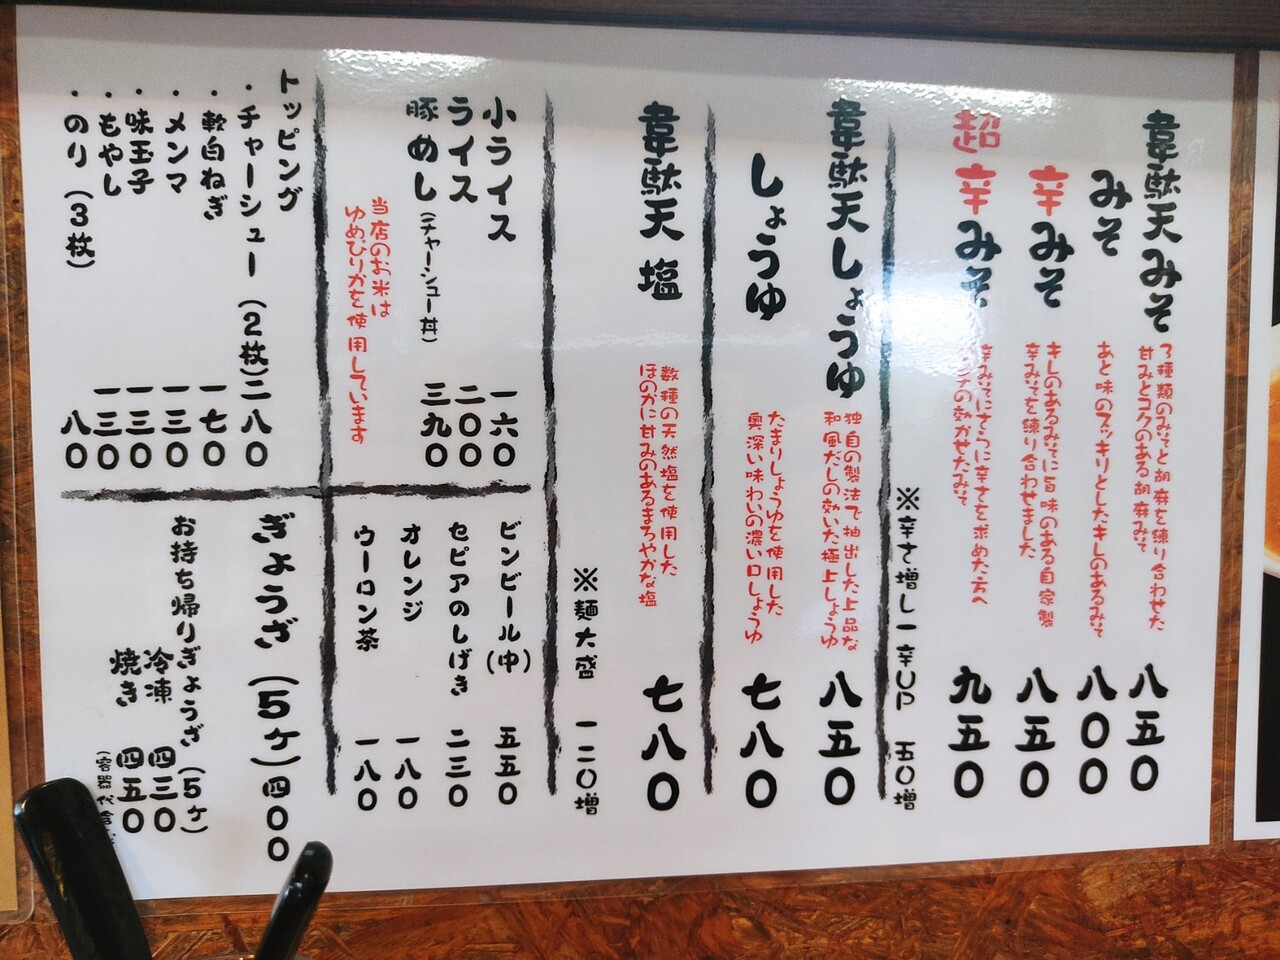 韋駄天みそ 3種類のみそと胡麻を練り合わせた 八五〇
甘みとコクのある胡麻みそ
みそ あと味のスッキリとしたキレのあるみそ 八〇〇
辛みそ キレのあるみそに旨味のある自家製 八五〇
辛みそを練り合わせました
超辛みそ 辛みそにさらに辛さを求めた方へ 九五〇
の効かせたみそ
※辛さ増し一辛UP 五〇増
韋駄天しょうゆ 独自の製法で抽出した上品な 八五〇
和風だしの効いた極上しょうゆ
しょうゆ たまりしょうゆを使用した 七八〇
奥深い味わいの濃い口しょうゆ
韋駄天 塩 数種の天然塩を使用した 七八〇
ほのかに甘みのあるまろやかな塩
※麺大盛 一二〇増
小ライス 一六〇
ライス 二〇〇
豚めし(チャーシュー丼) 三九〇
当店のお米は
ゆめぴりかを使用しています
ビンビール(中) 五五〇
セピアのしげき 二三〇
オレンジ 一八〇
ウーロン茶 一八〇
トッピング
・チャーシュー(2枚) 二八〇
・軟白ねぎ 一七〇
・メンマ 一三〇
・味玉子 一三〇
・もやし 一三〇
・のり(3枚) 八〇
ぎょうざ(5ケ) 四〇〇
お持ち帰りぎょうざ(5ケ)
冷凍 四三〇
焼き 四五〇
(容器代含